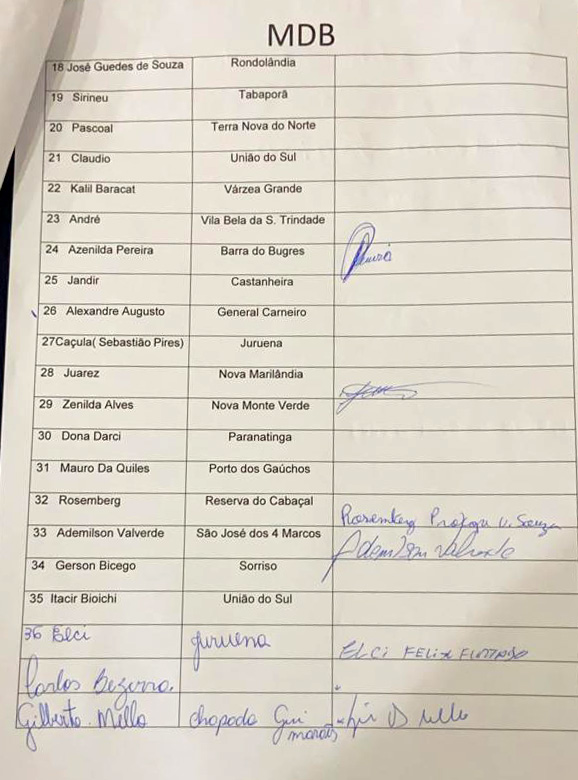 MDB
18 José Guedes de Souza Rondolândia
19 Sirineu Tabaporã
20 Pascoal Terra Nova do Norte
21 Claudio União do Sul
22 Kalil Baracat Várzea Grande
23 André Vila Bela da S. Trindade
24 Azenilda Pereira Barra do Bugres
25 Jandir Castanheira
26 Alexandre Augusto General Carneiro
27Caçula( Sebastião Pires) Juruena
28 Juarez Nova Marilândia
29 Zenilda Alves Nova Monte Verde
30 Dona Darci Paranatinga
31 Mauro Da Quiles Porto dos Gaúchos
32 Rosemberg Reserva do Cabaçal
33 Ademilson Valverde São José dos 4 Marcos Ademilson Valverde
34 Gerson Bicego Sorriso
35 Itacir Bioichi União do Sul
36 Elci Juruena ELCI FELIX
Carlos Bezerra.
Gilberto Mello chapada Gui
marães